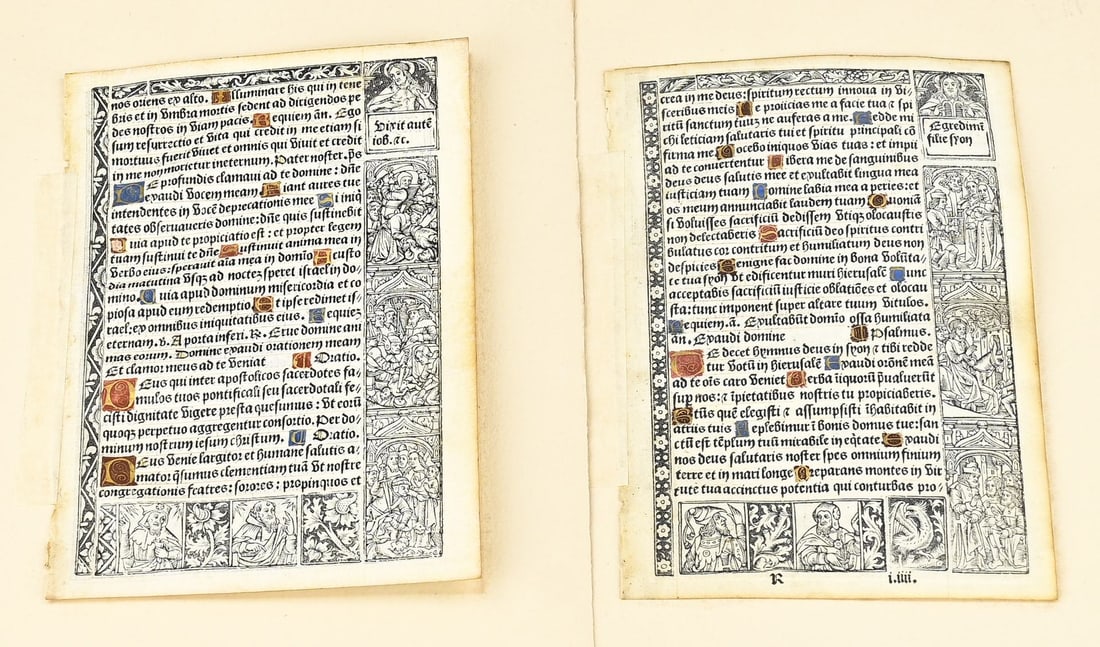 nos oriens ex alto. Illuminare his qui in tene
bris et in vmbra mortis sedent ad dirigendos pe
des nostros in viam pacis. Requiem añ. Ego
sum resurrectio et vita qui credit in me etiam si
mortuus fuerit vivet et omnis qui vivit et credit
in me non morietur ineternum. Pater noster. ps
De profundis clamavi ad te domine: dñe
exaudi vocem meam Fiant aures tue
intendentes in vocẽ deprecationis mee Si iniq
tates observaveris domine: dñe quis sustinebit
Quia apud te propiciatio est: et propter legem
tuam sustinui te dñe Sustinuit anima mea in
verbo eius: speravit aĩa mea in domĩo A custo
dia matutina vsqȝ ad noctẽ: speret israel in do-
mino. Quia apud dominum misericordia et co
piosa apud eum redemptio Et ipse redimet is-
rael: ex omnibus iniquitatibus eius. Requiẽ
eternam. v. A porta inferi. R. Erue domine ani
mas eorum. Domine exaudi orationem meam
Et clamor meus ad te veniat Oratio.
Deus qui inter apostolicos sacerdotes fa-
mulos tuos pontificali seu sacerdotali fe-
cisti dignitate vigere presta quesumus: vt eorũ
quoqȝ perpetuo aggregentur consortio. Per do-
minum nostrum iesum christum. Oratio.
Deus venie largitor et humane salutis a-
mator q̃sumus clementiam tuã vt nostre
congregationis featres: sorores: propinquos et
Dixit autẽ
iob. ⁊c.
crea in me deus: spiritum rectum innova in vi-
sceribus meis Ne proiicias me a facie tua ⁊ spi
ritũ sanctum tuuȝ ne auferas a me. Redde mi
chi leticiam salutaris tui et spiritu principali cõ
firma me Docebo iniquos vias tuas: et impii
ad te convertentur Libera me de sanguinibus
deus deus salutis mee et exultabit lingua mea
iusticiam tuam Domine labia mea aperies: et
os meum annunciabit laudem tuam Quoniã
si voluisses sacrificiũ dedissem vtiqȝ olocaustis
non delectaberis Sacrificiũ deo spiritus contri
bulatus cor contritum et humiliatum deus non
despicies Benigne fac domine in bona volũta-
te tua syon vt edificentur muri hierusalẽ Tunc
acceptabis sacrificiũ iusticie oblatiões et olocau
sta: tunc imponent super altare tuum vitulos.
Requiem. ã. Exultabũt domĩo ossa humiliata
añ. Exaudi domine Psalmus.
Te decet hymnus deus in syon ⁊ tibi redde
tur votũ in hierusalẽ Exaudi orõnẽ meã
ad te oĩs caro veniet Verba iĩquorũ p̃valuerũt
sup nos: ⁊ ĩpietatibus nostris tu propiciaberis.
Beatus quẽ elegisti ⁊ assumpsisti ĩhabitabit in
atriis tuis Replebimur ĩ bonis domus tue: san
ctũ est tẽplum tuũ mirabile in eq̃tate Exaudi
nos deus salutaris noster spes omnium finium
terre et in mari longe Preparans montes in vir
tute tua accinctus potentia qui conturbas pro-
Egredimĩ
filie syon
R i.iiii.